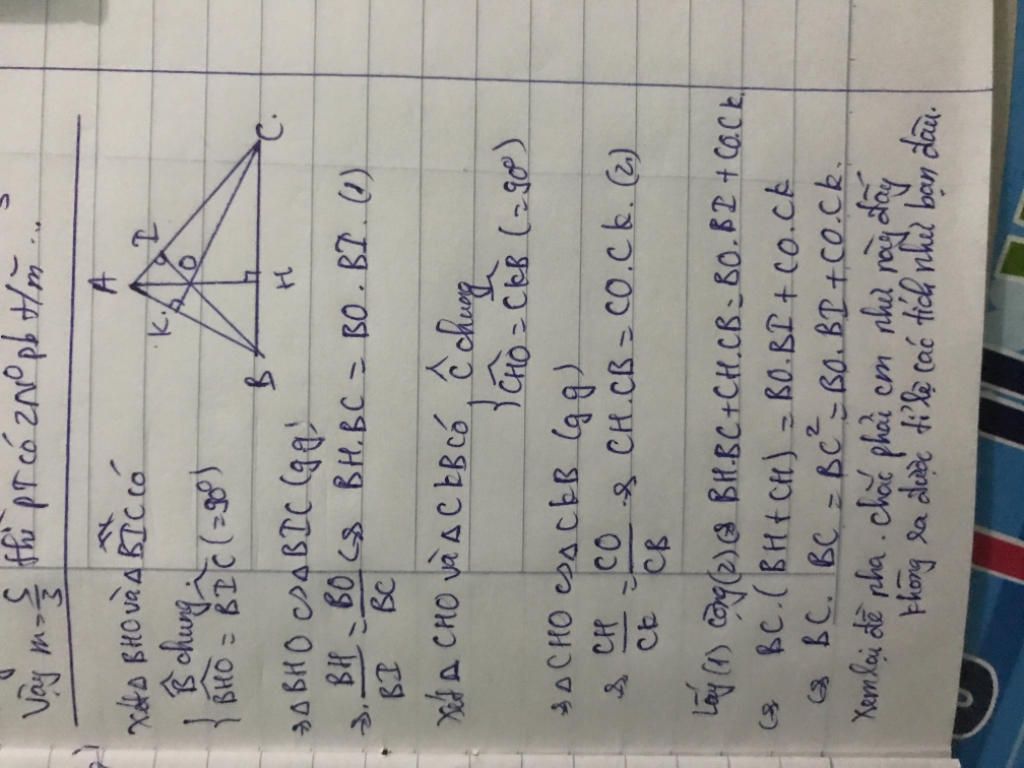 Vậy m = 5/3 thì PT có 2 N⁰ pb t/m...
Xét Δ BHO và Δ BIC có
{ B̂ chung
BHO = BIC (= 90⁰)
⇒ Δ BHO ∽ Δ BIC (gg)
⇒ BH/BI = BO/BC ⇔ BH.BC = BO.BI. (1)
Xét Δ CHO và Δ CKB có
{ Ĉ chung
CHO = CKB (= 90⁰)
⇒ Δ CHO ∽ Δ CKB (gg)
⇒ CH/CK = CO/CB ⇒ CH.CB = CO.CK. (2)
Lấy (1) cộng (2) ⇔ BH.BC + CH.CB = BO.BI + CO.CK.
⇔ BC.(BH + CH) = BO.BI + CO.CK
⇔ BC. BC = BC² = BO.BI + CO.CK.
Xem lại đề nha. chắc phải cm như này đấy
không ra được tỉ lệ các tích như bạn đâu.
A
K.
I
O
B
H
C.